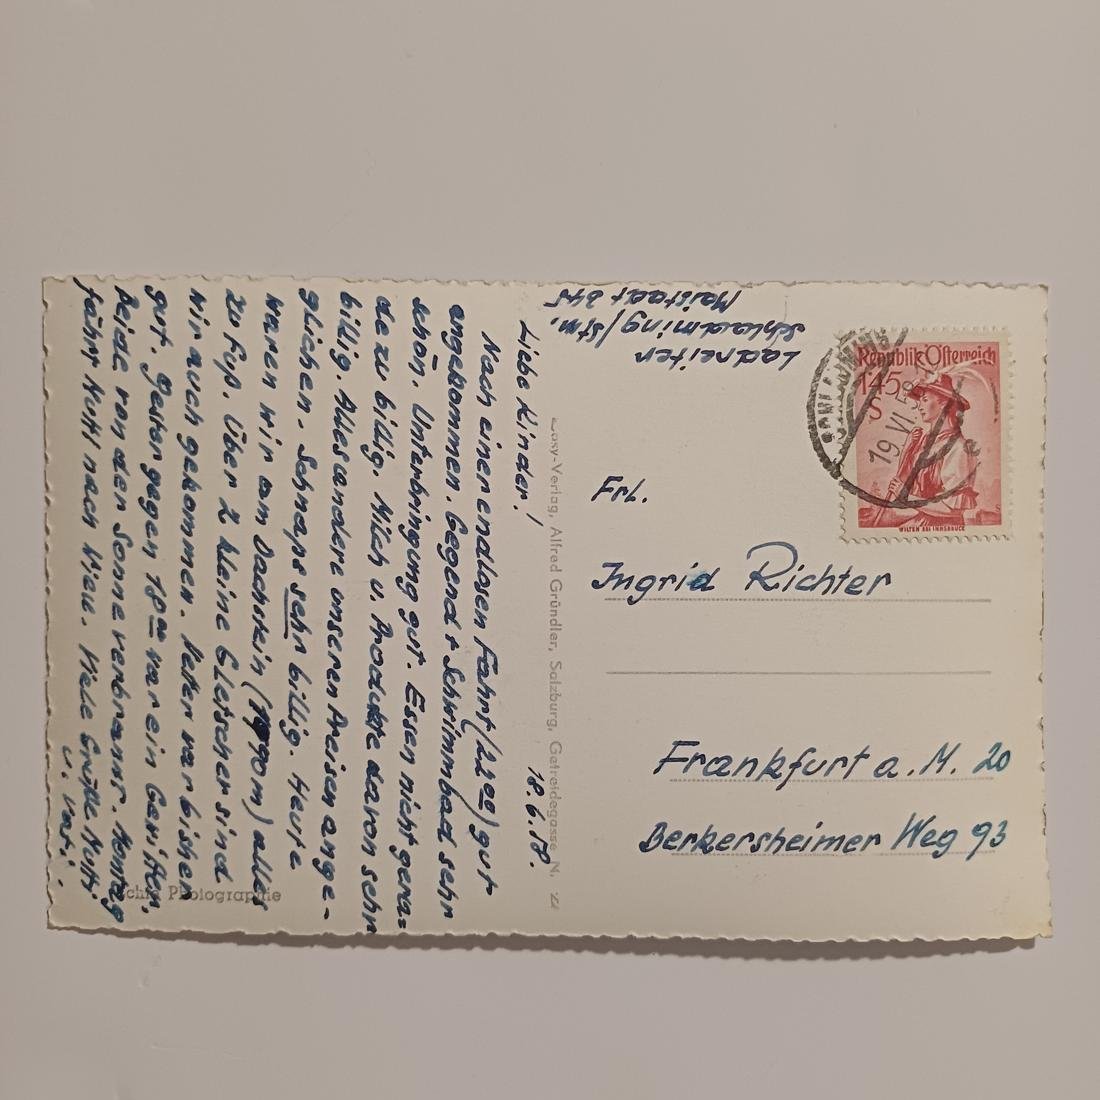 18.6.58.
Liebe Kinder!
Nach einer endlosen Fahrt (22 00) gut
angekommen. Gegend + Schwimmbad sehr
schön. Unterbringung gut. Essen nicht gera=
de zu billig. Milch u. Produkte davon sehr
billig. Alles andere unseren Preisen ange-
glichen. Schnaps sehr billig. Heute
waren wir am Dachstein (1990m) alles
zu Fuß. Über 2 kleine Gletscher sind
wir auch gekommen. Wetter war bisher
gut. Gestern gegen 18 00 war ein Gewitter.
Beide von der Sonne verbrannt. Montag
fährt Mutti nach Wien. Viele Grüße Mutti
u. Vati.
Echte Photographie
Cosy-Verlag, Alfred Gründler, Salzburg, Getreidegasse N. 22
Ladreiter
Schladming/Stm.
Maistatt 245
Republik Österreich
1.45
S
WILTEN BEI INNSBRUCK
SCHLADMING
19.VI.58
Frl.
Ingrid Richter
Frankfurt a. M. 20
Berkersheimer Weg 93